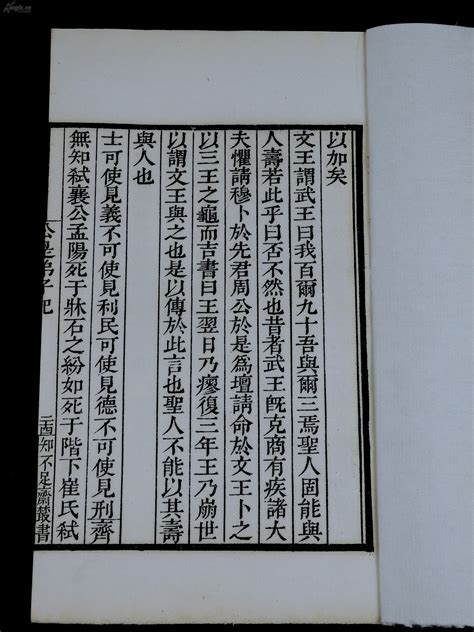 以加矣
文王謂武王曰我百爾九十吾與爾三焉聖人固能與
人壽若此乎曰否不然也昔者武王旣克商有疾諸大
夫懼請穆卜於先君周公於是爲壇請命於文王卜之
以三王之龜而吉書曰王翌日乃瘳復三年王乃崩世
以謂文王與之也是以傳於此言也聖人不能以其壽
與人也
士可使見義不可使見利民可使見德不可使見刑齊
無知弑襄公孟陽死于牀石之紛如死于階下崔氏弑
公是弟子記
知不足齋叢書